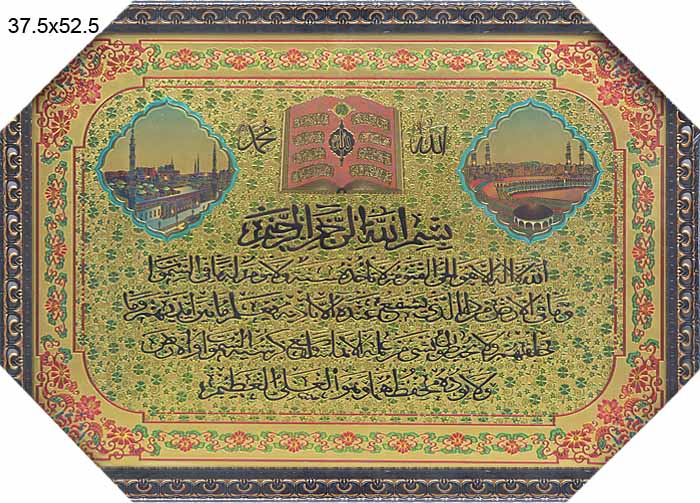 37.5x52.5
الله
محمد
بسم الله الرحمن الرحيم
الله لا اله الا هو الحي القيوم لا تأخذه سنة ولا نوم له ما في السموات
وما في الارض من ذا الذي يشفع عنده الا باذنه يعلم ما بين ايديهم وما
خلفهم ولا يحيطون بشيء من علمه الا بما شاء وسع كرسيه السموات والارض
ولا يؤده حفظهما وهو العلي العظيم